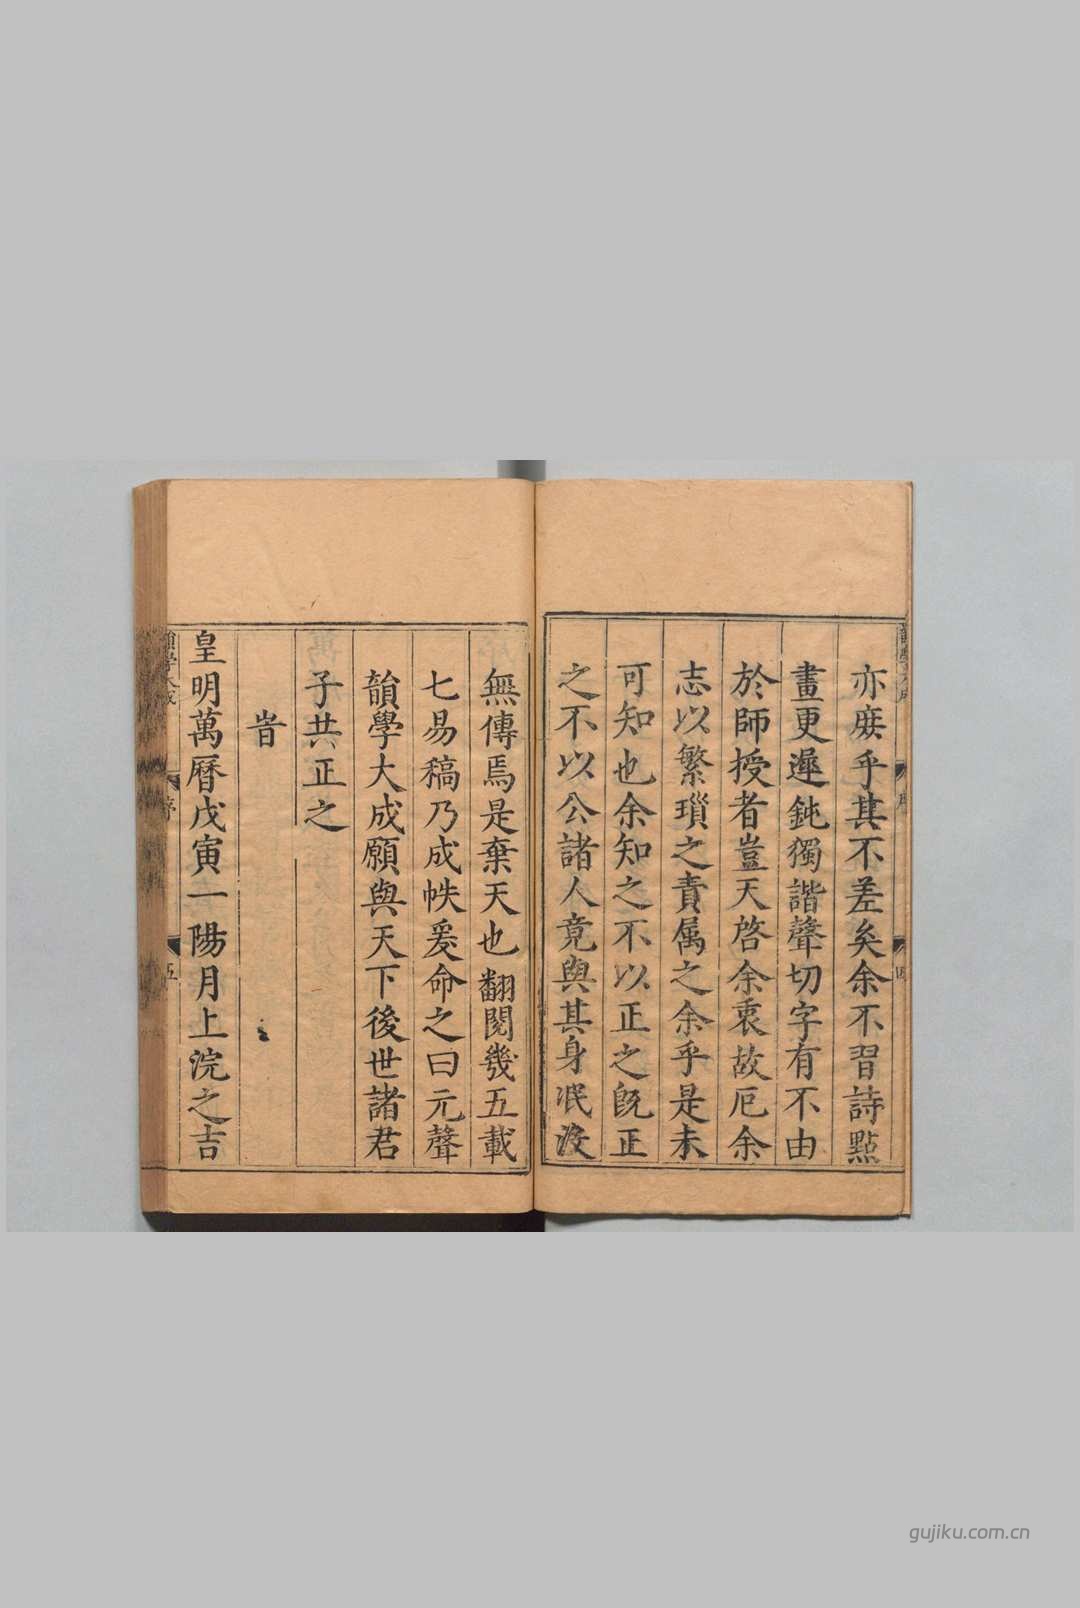 亦庻乎其不差矣余不習詩點
畫更遲鈍獨諧聲切字有不由
於師授者豈天啓余衷故厄余
志以繁瑣之責属之余乎是未
可知也余知之不以正之既正
之不以公諸人竟與其身泯没
無傳焉是棄天也翻閱幾五載
七易稿乃成帙爰命之曰元聲
韻學大成願與天下後世諸君
子共正之
旹
皇明萬曆戊寅一陽月上浣之吉
韻學大成
序
五
gujiku.com.cn